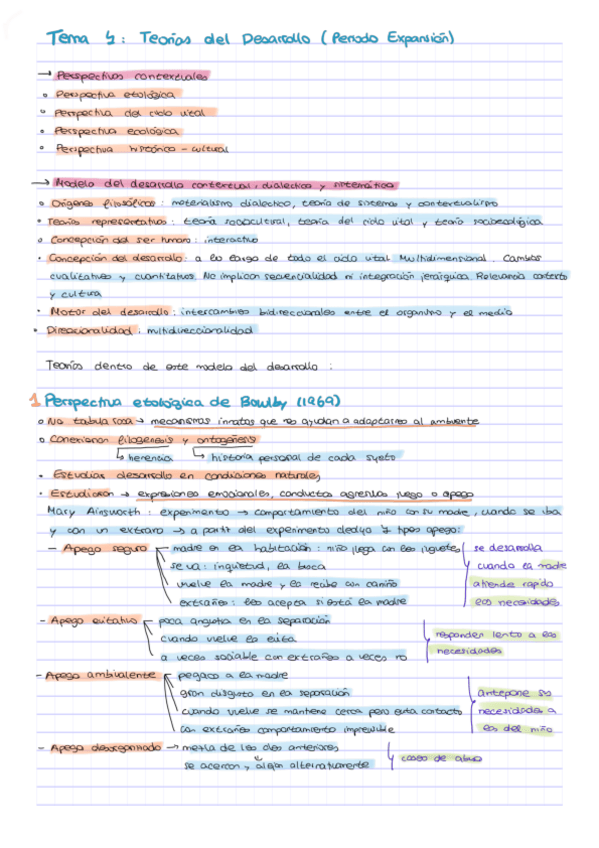 Tema 4: Teorías del Desarrollo (Periodo Expansión)
→ Perspectivas contextuales
Perspectiva etológica
Perspectiva del ciclo vital
Perspectiva ecológica
Perspectiva histórico - cultural
→ Modelo del desarrollo contextual, dialéctico y sistemático
Orígenes filosóficos: materialismo dialéctico, teoría de sistemas y contextualismo
Teorías representativas: teoría sociocultural, teoría del ciclo vital y teoría socioecológica
Concepción del ser humano: interactivo
Concepción del desarrollo: a lo largo de todo el ciclo vital. Multidimensional. Cambios
cualitativos y cuantitativos. No implican secuencialidad ni integración jerárquica. Relevancia contexto
y cultura
Motor del desarrollo: intercambios bidireccionales entre el organismo y el medio
Direccionalidad: multidireccionalidad
Teorías dentro de este modelo del desarrollo :
1 Perspectiva etológica de Bowlby (1969)
No tabula rasa → mecanismos innatos que no ayudan a adaptarnos al ambiente
Conexionan filogénesis y ontogénesis
↳ herencia ↳ historia personal de cada sujeto
Estudian desarrollo en condiciones naturales
Estudiaron → expresiones emocionales, conductas agresivas juego o apego
Mary Ainsworth: experimento → comportamiento del niño con su madre, cuando se iba
y con un extraño → a partir del experimento dedujo tipos apego:
- Apego seguro madre en la habitación: niño juega con los juguetes
se va: inquietud, la busca
vuelve la madre y la recibe con cariño
extraños: los acepta si está la madre
se desarrolla
cuando la madre
atiende rápido
las necesidades
- Apego evitativo poca angustia en la separación
cuando vuelve la evita
a veces sociable con extraños a veces no
responden lento a las
necesidades
- Apego ambivalente pegado a la madre
gran disgusto en la separación
cuando vuelve se mantiene cerca pero evita contacto
con extraños comportamiento impredecible
antepone sus
necesidades a
las del niño
- Apego desorganizado → mezcla de los dos anteriores
se acercan y alejan alternativamente
casos de abuso